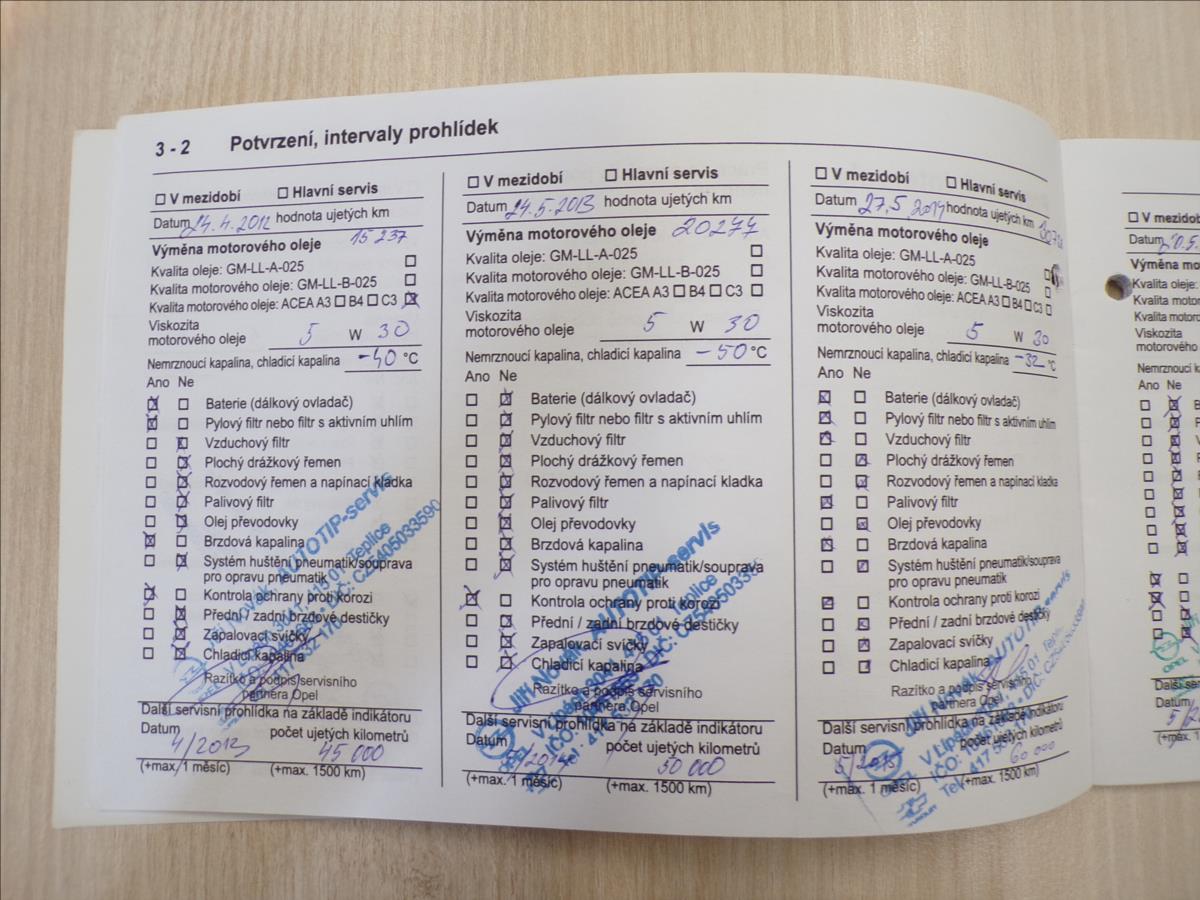 3 - 2 Potvrzení, intervaly prohlídek
☐ V mezidobí ☐ Hlavní servis
Datum 24.4.2012 hodnota ujetých km
15 237
Výměna motorového oleje
Kvalita oleje: GM-LL-A-025 ☐
Kvalita motorového oleje: GM-LL-B-025 ☐
Kvalita motorového oleje: ACEA A3 ☐ B4 ☐ C3 ☒
Viskozita
motorového oleje 5 W 30
Nemrznoucí kapalina, chladicí kapalina -40 °C
Ano Ne
☒ ☐ Baterie (dálkový ovladač)
☒ ☐ Pylový filtr nebo filtr s aktivním uhlím
☐ ☒ Vzduchový filtr
☐ ☒ Plochý drážkový řemen
☐ ☒ Rozvodový řemen a napínací kladka
☐ ☒ Palivový filtr
☐ ☒ Olej převodovky
☒ ☐ Brzdová kapalina
☐ ☒ Systém huštění pneumatik/souprava
pro opravu pneumatik
☒ ☐ Kontrola ochrany proti korozi
☐ ☒ Přední / zadní brzdové destičky
☐ ☒ Zapalovací svíčky
☐ ☒ Chladicí kapalina
Razítko a podpis servisního
partnera Opel
AUTOTIP-servis
415 01 Teplice
DIČ: CZ5405033590
Další servisní prohlídka na základě indikátoru
Datum počet ujetých kilometrů
4/2013 45 000
(+max. 1 měsíc) (+max. 1500 km)
☐ V mezidobí ☐ Hlavní servis
Datum 24.5.2013 hodnota ujetých km
Výměna motorového oleje 20277
Kvalita oleje: GM-LL-A-025 ☐
Kvalita motorového oleje: GM-LL-B-025 ☐
Kvalita motorového oleje: ACEA A3 ☐ B4 ☐ C3 ☐
Viskozita
motorového oleje 5 W 30
Nemrznoucí kapalina, chladicí kapalina -50 °C
Ano Ne
☐ ☒ Baterie (dálkový ovladač)
☐ ☒ Pylový filtr nebo filtr s aktivním uhlím
☐ ☒ Vzduchový filtr
☐ ☒ Plochý drážkový řemen
☐ ☒ Rozvodový řemen a napínací kladka
☐ ☒ Palivový filtr
☐ ☒ Olej převodovky
☐ ☒ Brzdová kapalina
☐ ☒ Systém huštění pneumatik/souprava
pro opravu pneumatik
☒ ☐ Kontrola ochrany proti korozi
☐ ☒ Přední / zadní brzdové destičky
☐ ☒ Zapalovací svíčky
☐ ☒ Chladicí kapalina
Razítko a podpis servisního
partnera Opel
AUTOTIP-servis
Teplice
Další servisní prohlídka na základě indikátoru
Datum počet ujetých kilometrů
50 000
(+max. 1 měsíc) (+max. 1500 km)
☐ V mezidobí ☐ Hlavní servis
Datum 27.5 2014 hodnota ujetých km
Výměna motorového oleje
Kvalita oleje: GM-LL-A-025
Kvalita motorového oleje: GM-LL-B-025 ☐
Kvalita motorového oleje: ACEA A3 ☐ B4 ☐ C3 ☐
Viskozita
motorového oleje 5 W 30
Nemrznoucí kapalina, chladicí kapalina -32 °C
Ano Ne
☒ ☐ Baterie (dálkový ovladač)
☒ ☐ Pylový filtr nebo filtr s aktivním uhlím
☒ ☐ Vzduchový filtr
☐ ☒ Plochý drážkový řemen
☐ ☒ Rozvodový řemen a napínací kladka
☒ ☐ Palivový filtr
☐ ☒ Olej převodovky
☒ ☐ Brzdová kapalina
☐ ☒ Systém huštění pneumatik/souprava
pro opravu pneumatik
☒ ☐ Kontrola ochrany proti korozi
☐ ☒ Přední / zadní brzdové destičky
☐ ☒ Zapalovací svíčky
☐ ☒ Chladicí kapalina
Razítko a podpis servisního
partnera Opel
Další servisní prohlídka na základě indikátoru
Datum počet ujetých kilometrů
5/2015 60 000
(+max. 1 měsíc) (+max. 1500 km)
☐ V mezidobí
Datum
Výměna
Kvalita oleje:
Kvalita
Kvalita
Viskozita
motorového
Nemrznoucí
Ano Ne
OPEL
Další servisní
Datum
(+max. 1